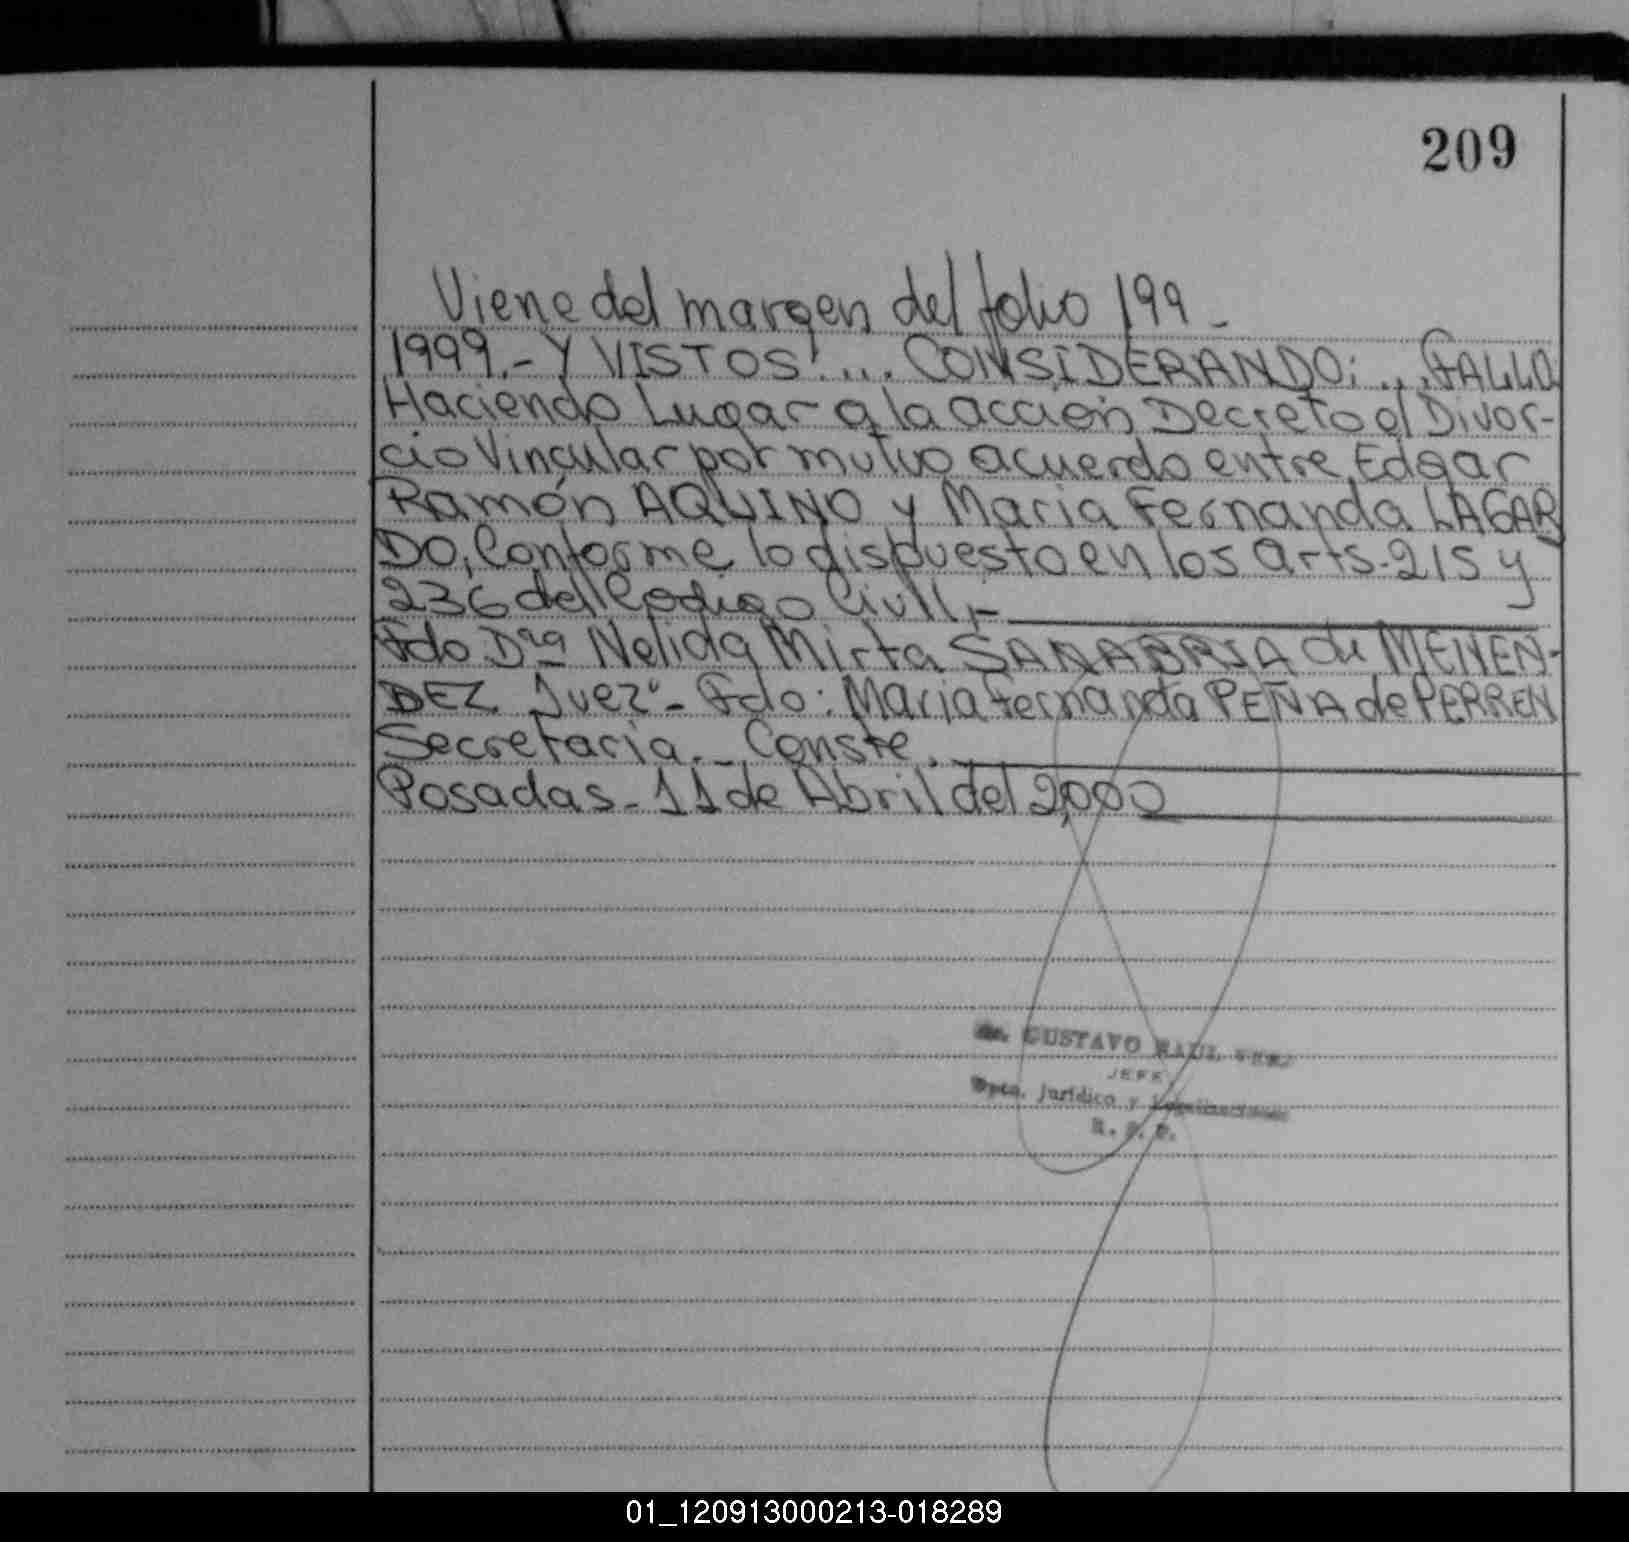 209
Viene del margen del folio 199-
1999.- Y VISTOS:... CONSIDERANDO:... FALLO
Haciendo Lugar a la acción Decreto el Divor-
cio Vincular por mutuo acuerdo entre Edgar
Ramón AQUINO y Maria Fernanda LAGAR
DO, Conforme lo dispuesto en los arts. 215 y
236 del Codigo Civil.-
Fdo Dra Nelida Mirta SANABRIA de MENEN-
DEZ Juez.- Fdo: Maria Fernanda PEÑA de PERREN
Secretaria.- Conste.
Posadas - 11 de Abril del 2,000
GUSTAVO RAUL
JEFE
Dpto. Jurídico y
01_120913000213-018289